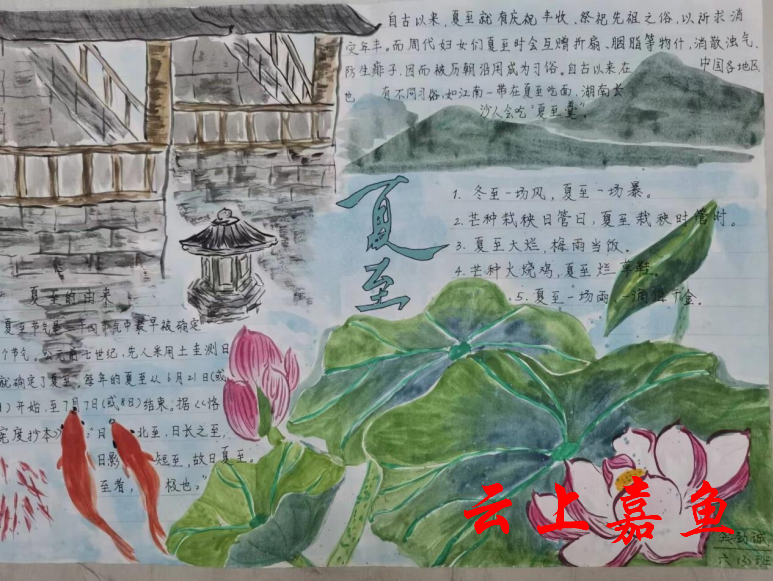 自古以来，夏至就有庆祝丰收、祭祀先祖之俗，以祈求消
灾年丰。而周代妇女们夏至时会互赠折扇、胭脂等物什，消散浊气，
防生痱子，因而被历朝沿用成为习俗。自古以来在 中国各地区
也 有不同习俗，如江南一带在夏至吃面，湖南长
沙人会吃“夏至羹”。
夏至
1. 冬至一场风，夏至一场暴。
2. 芒种栽秧日管日，夏至栽秧时管时。
3. 夏至大烂，梅雨当饭。
4. 芒种火烧鸡，夏至烂草鞋。
5. 夏至一场雨 一滴值千金。
夏至的由来
夏至节气是二十四节气中最早被确定
个节气。公元前七世纪，先人采用土圭测日
就确定了夏至。每年的夏至从6月21日(或
日)开始，至7月7日(或8日)结束。据《恪
宽度抄本》“日 北至，日长之至，
日影 短至，故日夏至。
至者， 极也。”
云上嘉鱼
六(3)班